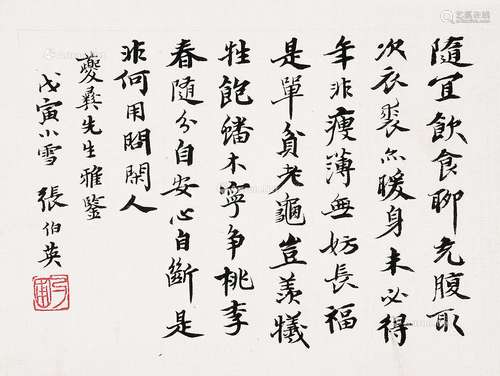 隨宜飲食聊充腹取
次衣裘亦暖身未必得
年非瘦薄無妨長福
是單貧老龜豈羨犧
牲飽蟠木寧爭桃李
春隨分自安心自斷是
非何用問閑人
夔彝先生雅鑒
戊寅小雪 張伯英